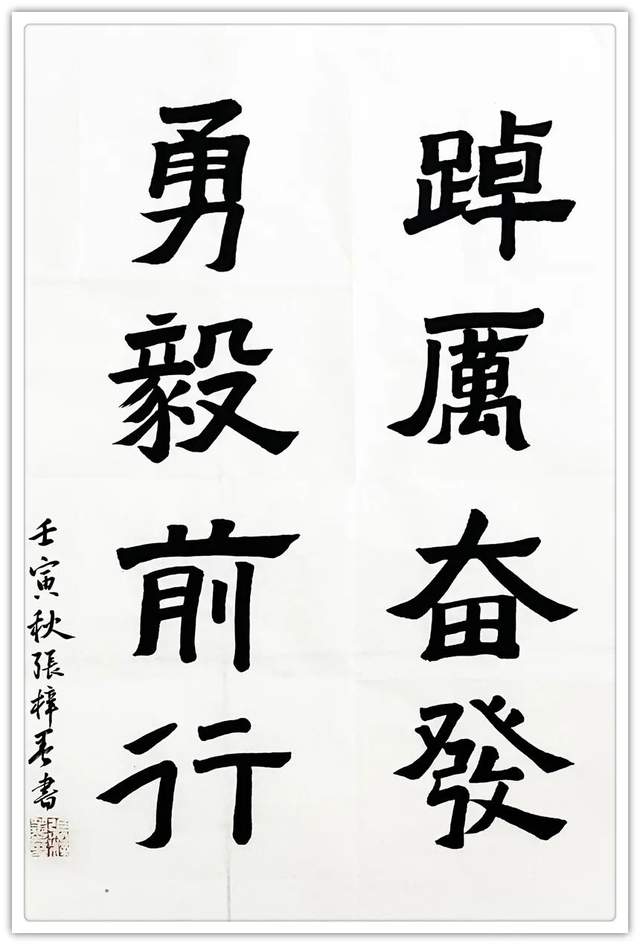 踔厲奋發
勇毅前行
壬寅秋張梓 書